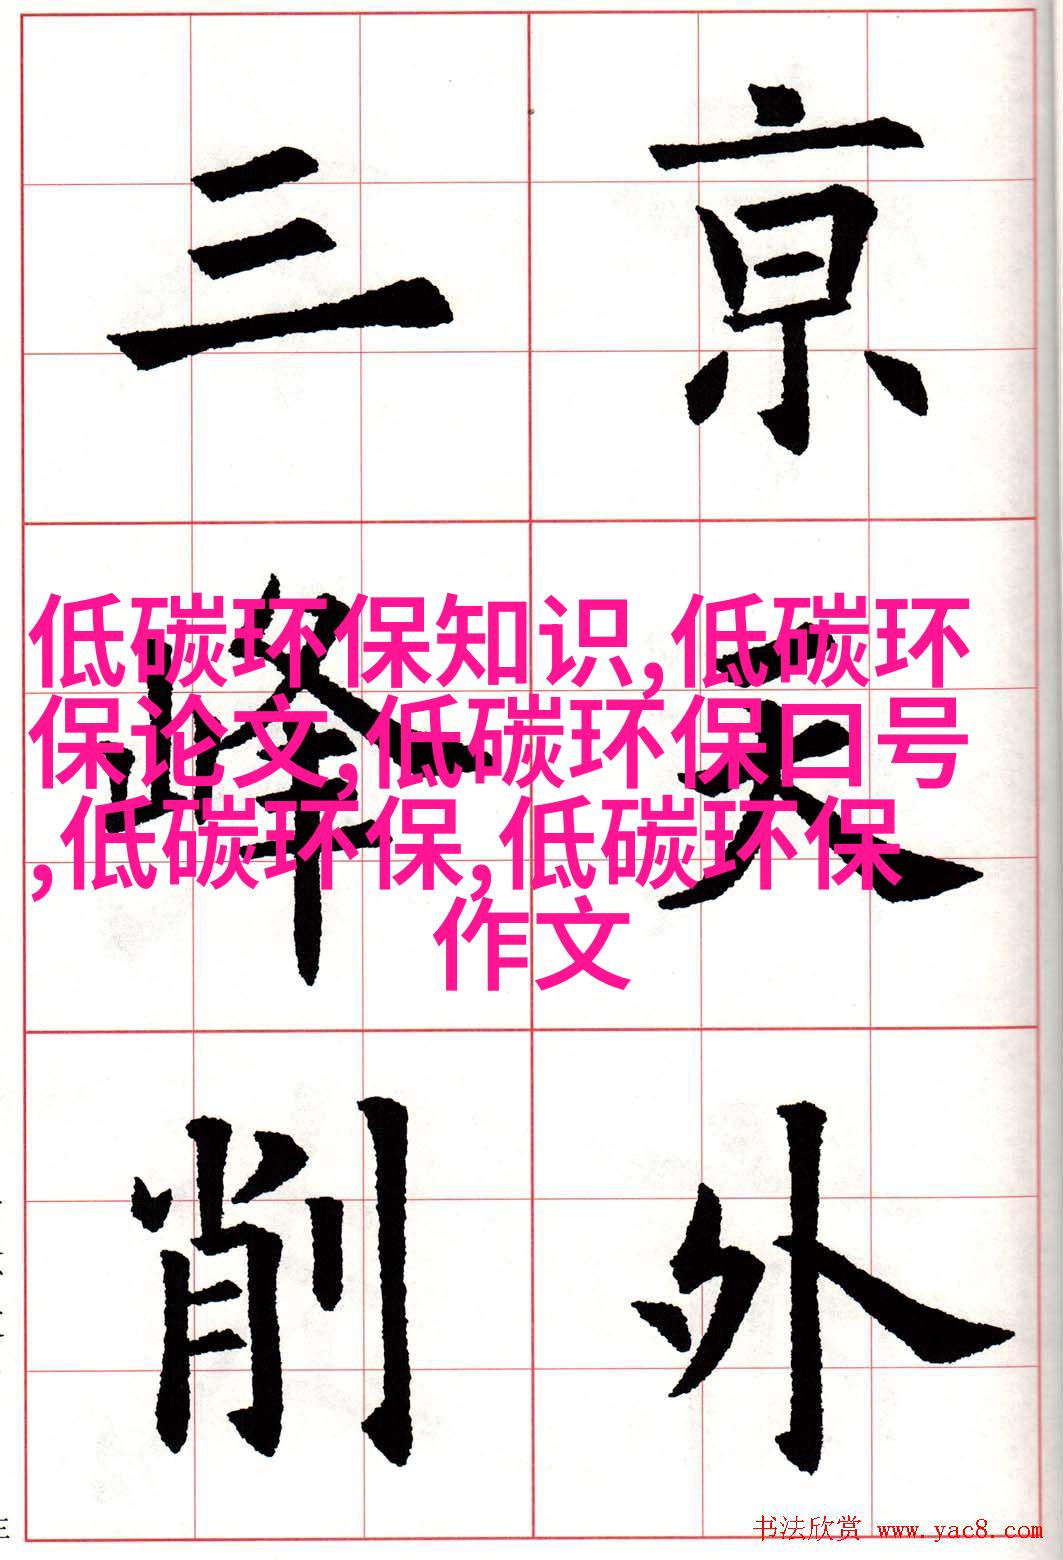 亰天外
三峰削
低碳环保知识,低碳环
保论文,低碳环保口号
,低碳环保,低碳环保
作文
书法欣赏 www.yac8.com